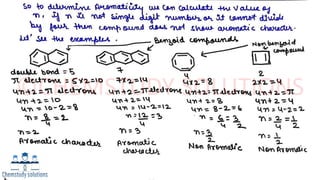 So to determine Aromaticity we can calculate the value of
n. if n is not single digit number, or it cannot divide
by four then compound does not show aromatic character.
Let' see the examples. Benzoid compounds
Non benzoid compound
double bond = 5 7 4 2
π electrons = 5x2=10 7x2=14 4x2=8 2x2=4
4n+2=π electrons 4n+2=π electrons 4n+2=π electrons 4n+2=π
4n+2=10 4n+2=14 4n+2=8 4n+2=4
4n=10-2=8 4n=14-2=12 4n=8-2=6 4n=4-2=2
n=8/4=2 n=12/4=3 n=6/4=3/2 n=2/4=1/2
n=2 n=3 n=3/2 n=1/2
Aromatic character Aromatic character Non Aromatic Non Aromatic
Chemstudy solutions